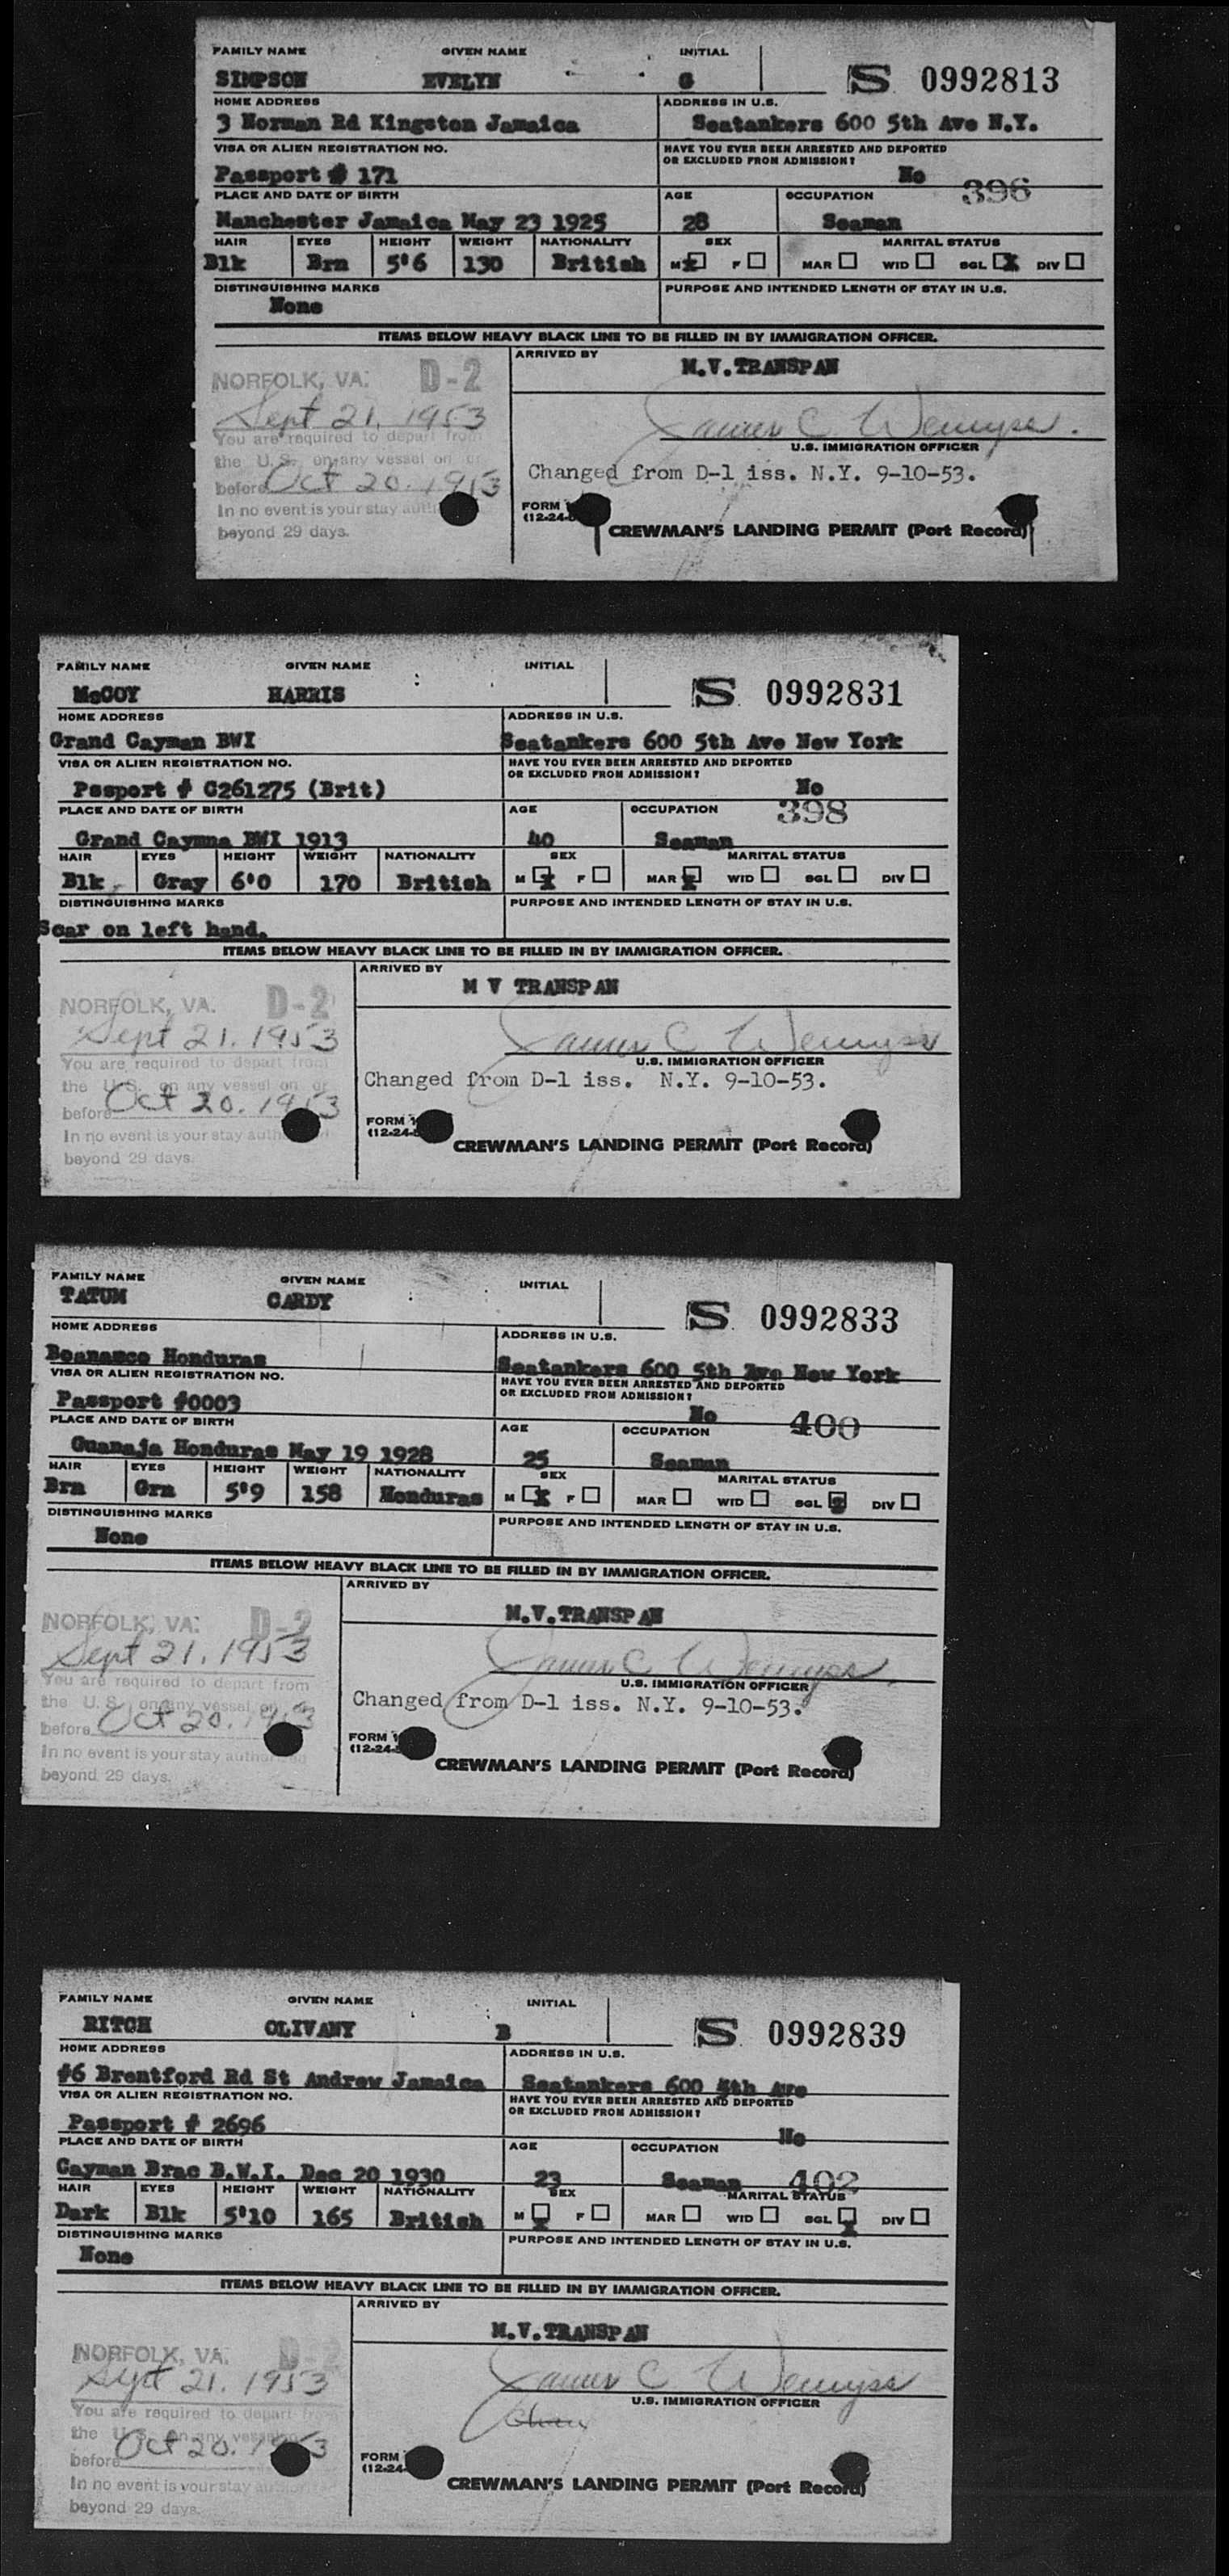 FAMILY NAME GIVEN NAME INITIAL
SIMPSON EVELYN G S 0992813
HOME ADDRESS ADDRESS IN U.S.
3 Norman Rd Kingston Jamaica Seatankers 600 5th Ave N.Y.
VISA OR ALIEN REGISTRATION NO. HAVE YOU EVER BEEN ARRESTED AND DEPORTED
OR EXCLUDED FROM ADMISSION?
Passport # 171 No 396
PLACE AND DATE OF BIRTH AGE OCCUPATION
Manchester Jamaica May 23 1925 28 Seaman
HAIR EYES HEIGHT WEIGHT NATIONALITY SEX MARITAL STATUS
Blk Brn 5'6 130 British M X F MAR WID SGL X DIV
DISTINGUISHING MARKS PURPOSE AND INTENDED LENGTH OF STAY IN U.S.
None
ITEMS BELOW HEAVY BLACK LINE TO BE FILLED IN BY IMMIGRATION OFFICER.
ARRIVED BY
M.V.TRANSPAN
NORFOLK, VA. D-2
Sept 21, 1953 James C Wemyss.
You are required to depart from U.S. IMMIGRATION OFFICER
the U.S. on any vessel on or Changed from D-1 iss. N.Y. 9-10-53.
before Oct 20, 1953
In no event is your stay FORM
(12-24-
beyond 29 days. CREWMAN'S LANDING PERMIT (Port Record)
FAMILY NAME GIVEN NAME INITIAL
McCOY HARRIS S 0992831
HOME ADDRESS ADDRESS IN U.S.
Grand Cayman BWI Seatankers 600 5th Ave New York
VISA OR ALIEN REGISTRATION NO. HAVE YOU EVER BEEN ARRESTED AND DEPORTED
OR EXCLUDED FROM ADMISSION?
Pasport # C261275 (Brit) No
PLACE AND DATE OF BIRTH AGE OCCUPATION 398
Grand Caymna BWI 1913 40 Seaman
HAIR EYES HEIGHT WEIGHT NATIONALITY SEX MARITAL STATUS
Blk Gray 6'0 170 British M X F MAR X WID SGL DIV
DISTINGUISHING MARKS PURPOSE AND INTENDED LENGTH OF STAY IN U.S.
Scar on left hand.
ITEMS BELOW HEAVY BLACK LINE TO BE FILLED IN BY IMMIGRATION OFFICER.
ARRIVED BY
M V TRANSPAN
NORFOLK, VA. D-2
Sept 21, 1953 James C Wemyss
You are required to depart from U.S. IMMIGRATION OFFICER
the U.S. on any vessel on or Changed from D-1 iss. N.Y. 9-10-53.
before Oct 20, 1953
In no event is your stay FORM
(12-24-
beyond 29 days. CREWMAN'S LANDING PERMIT (Port Record)
FAMILY NAME GIVEN NAME INITIAL
TATUM CARDY S 0992833
HOME ADDRESS ADDRESS IN U.S.
Honduras Seatankers 600 5th Ave New York
VISA OR ALIEN REGISTRATION NO. HAVE YOU EVER BEEN ARRESTED AND DEPORTED
OR EXCLUDED FROM ADMISSION?
Passport #0003 No 400
PLACE AND DATE OF BIRTH AGE OCCUPATION
Guanaja Honduras May 19 1928 25 Seaman
HAIR EYES HEIGHT WEIGHT NATIONALITY SEX MARITAL STATUS
Brn Grn 5'9 158 Honduras M X F MAR WID SGL DIV
DISTINGUISHING MARKS PURPOSE AND INTENDED LENGTH OF STAY IN U.S.
None
ITEMS BELOW HEAVY BLACK LINE TO BE FILLED IN BY IMMIGRATION OFFICER.
ARRIVED BY
M.V.TRANSPAN
NORFOLK, VA. D-2
Sept 21, 1953 James C Wemyss
You are required to depart from U.S. IMMIGRATION OFFICER
the U.S. on any vessel on or Changed from D-1 iss. N.Y. 9-10-53.
before Oct 20, 1953
In no event is your stay FORM
(12-24-
beyond 29 days. CREWMAN'S LANDING PERMIT (Port Record)
FAMILY NAME GIVEN NAME INITIAL
RITCH OLIVANY B S 0992839
HOME ADDRESS ADDRESS IN U.S.
#6 Brentford Rd St Andrew Jamaica Seatankers 600 5th Ave
VISA OR ALIEN REGISTRATION NO. HAVE YOU EVER BEEN ARRESTED AND DEPORTED
OR EXCLUDED FROM ADMISSION?
Passport # 2696 No
PLACE AND DATE OF BIRTH AGE OCCUPATION
Cayman Brac B.W.I. Dec 20 1930 23 Seaman 402
HAIR EYES HEIGHT WEIGHT NATIONALITY SEX MARITAL STATUS
Dark Blk 5'10 165 British M X F MAR WID SGL X DIV
DISTINGUISHING MARKS PURPOSE AND INTENDED LENGTH OF STAY IN U.S.
None
ITEMS BELOW HEAVY BLACK LINE TO BE FILLED IN BY IMMIGRATION OFFICER.
ARRIVED BY
M.V.TRANSPAN
NORFOLK, VA. D-2
Sept 21, 1953 James C Wemyss
You are required to depart from U.S. IMMIGRATION OFFICER
the U.S. on any vessel
before Oct 20, 1953
In no event is your stay FORM
(12-24-
beyond 29 days. CREWMAN'S LANDING PERMIT (Port Record)